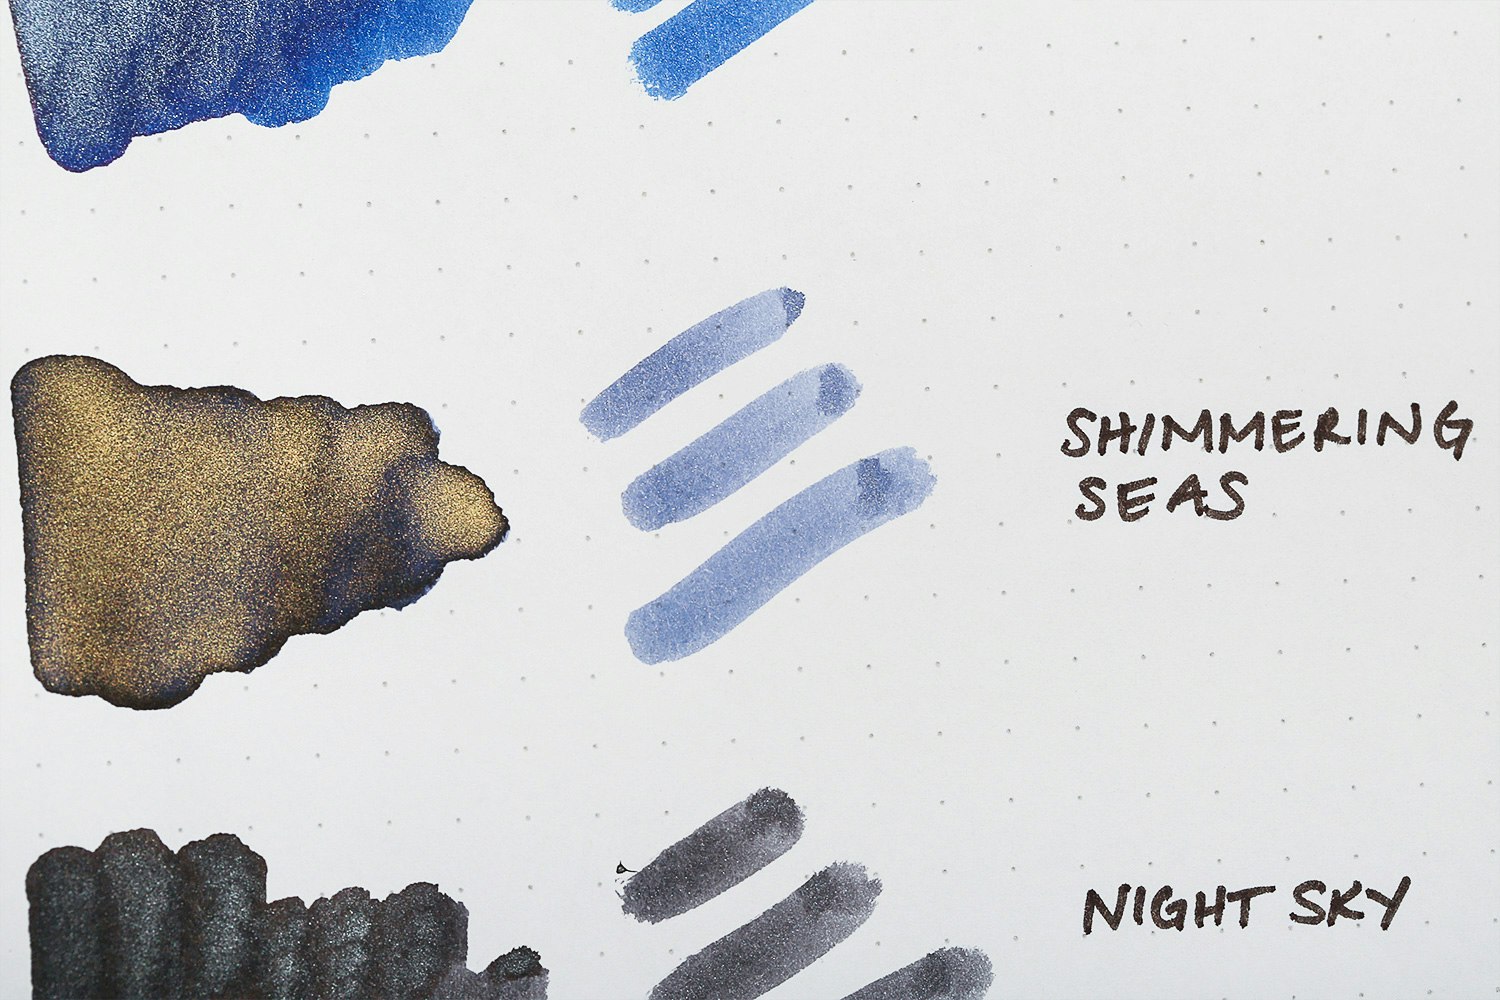 SHIMMERING
SEAS
NIGHT SKY